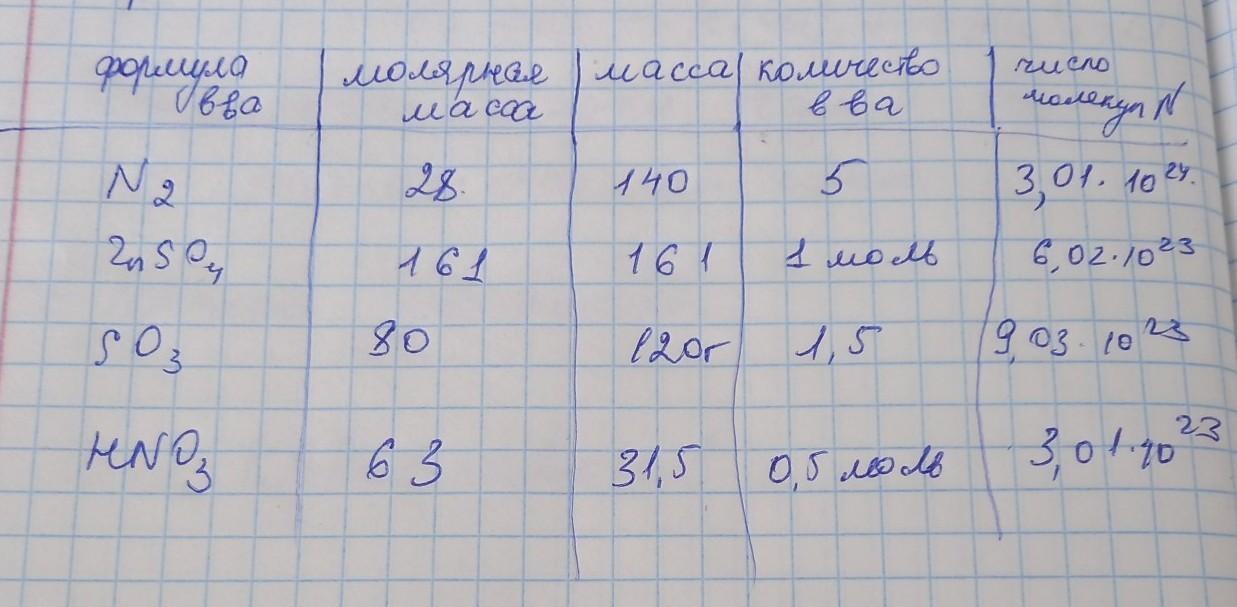 формула молярная масса количество число
вва масса в ва молекул N
N2 28. 140 5 3,01. 10²⁴.
ZnSO4 161 161 1 моль 6,02·10²³
SO3 80 120г 1,5 9,03· 10²³
HNO3 63 31,5 0,5 моль 3,01·10²³